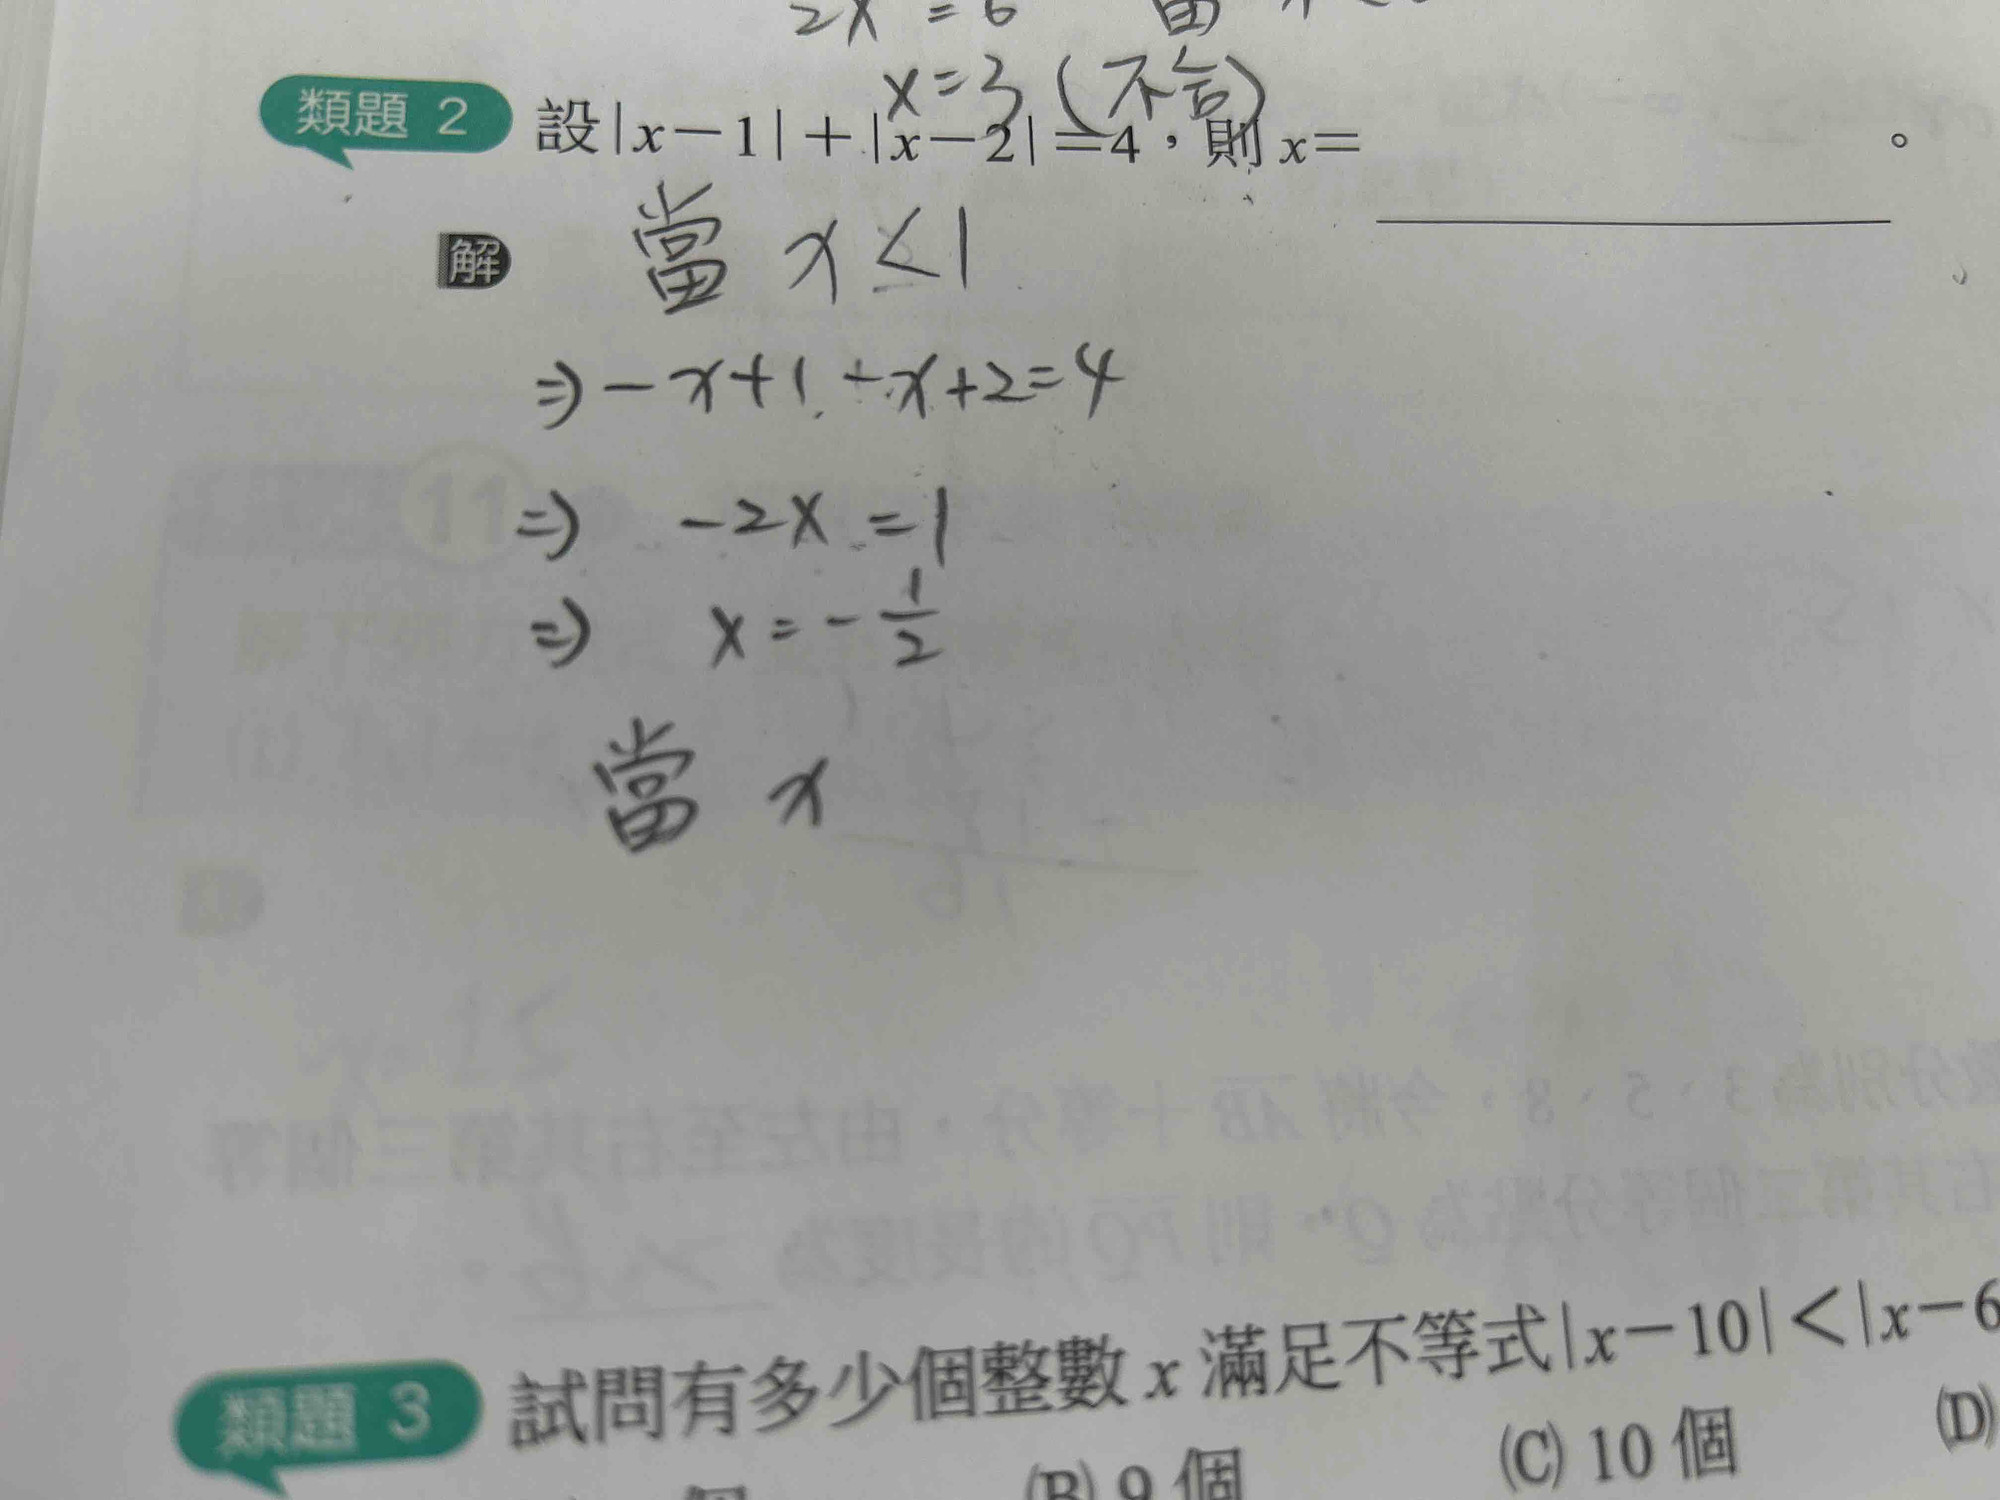 2x = 6 當 x
x=3 (不合)
類題 2 設|x-1|+|x-2|=4，則 x=＿＿＿。
解 當 x≤1
⇒ -x+1-x+2=4
⇒ -2x=1
⇒ x=-1/2
當 x
類題 3 試問有多少個整數 x 滿足不等式|x-10|<|x-6
個 (B) 9 個 (C) 10 個 (D)